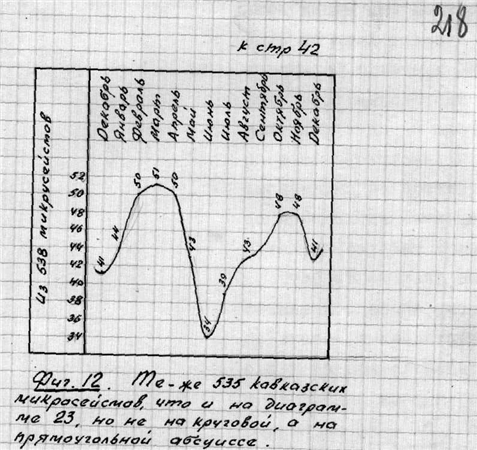 218
к стр 42
Декабрь
Январь
Февраль
Март
Апрель
Май
Июнь
Июль
Август
Сентябрь
Октябрь
Ноябрь
Декабрь
Из 538 микрусейстов
52
50
48
46
44
42
40
38
36
34
41
44
50
51
50
43
34
39
43
48
48
41
Фиг. 12. Те-же 535 кавказских
микросейстов, что и на диаграм-
ме 23, но не на круговой, а на
прямоугольной абсциссе.